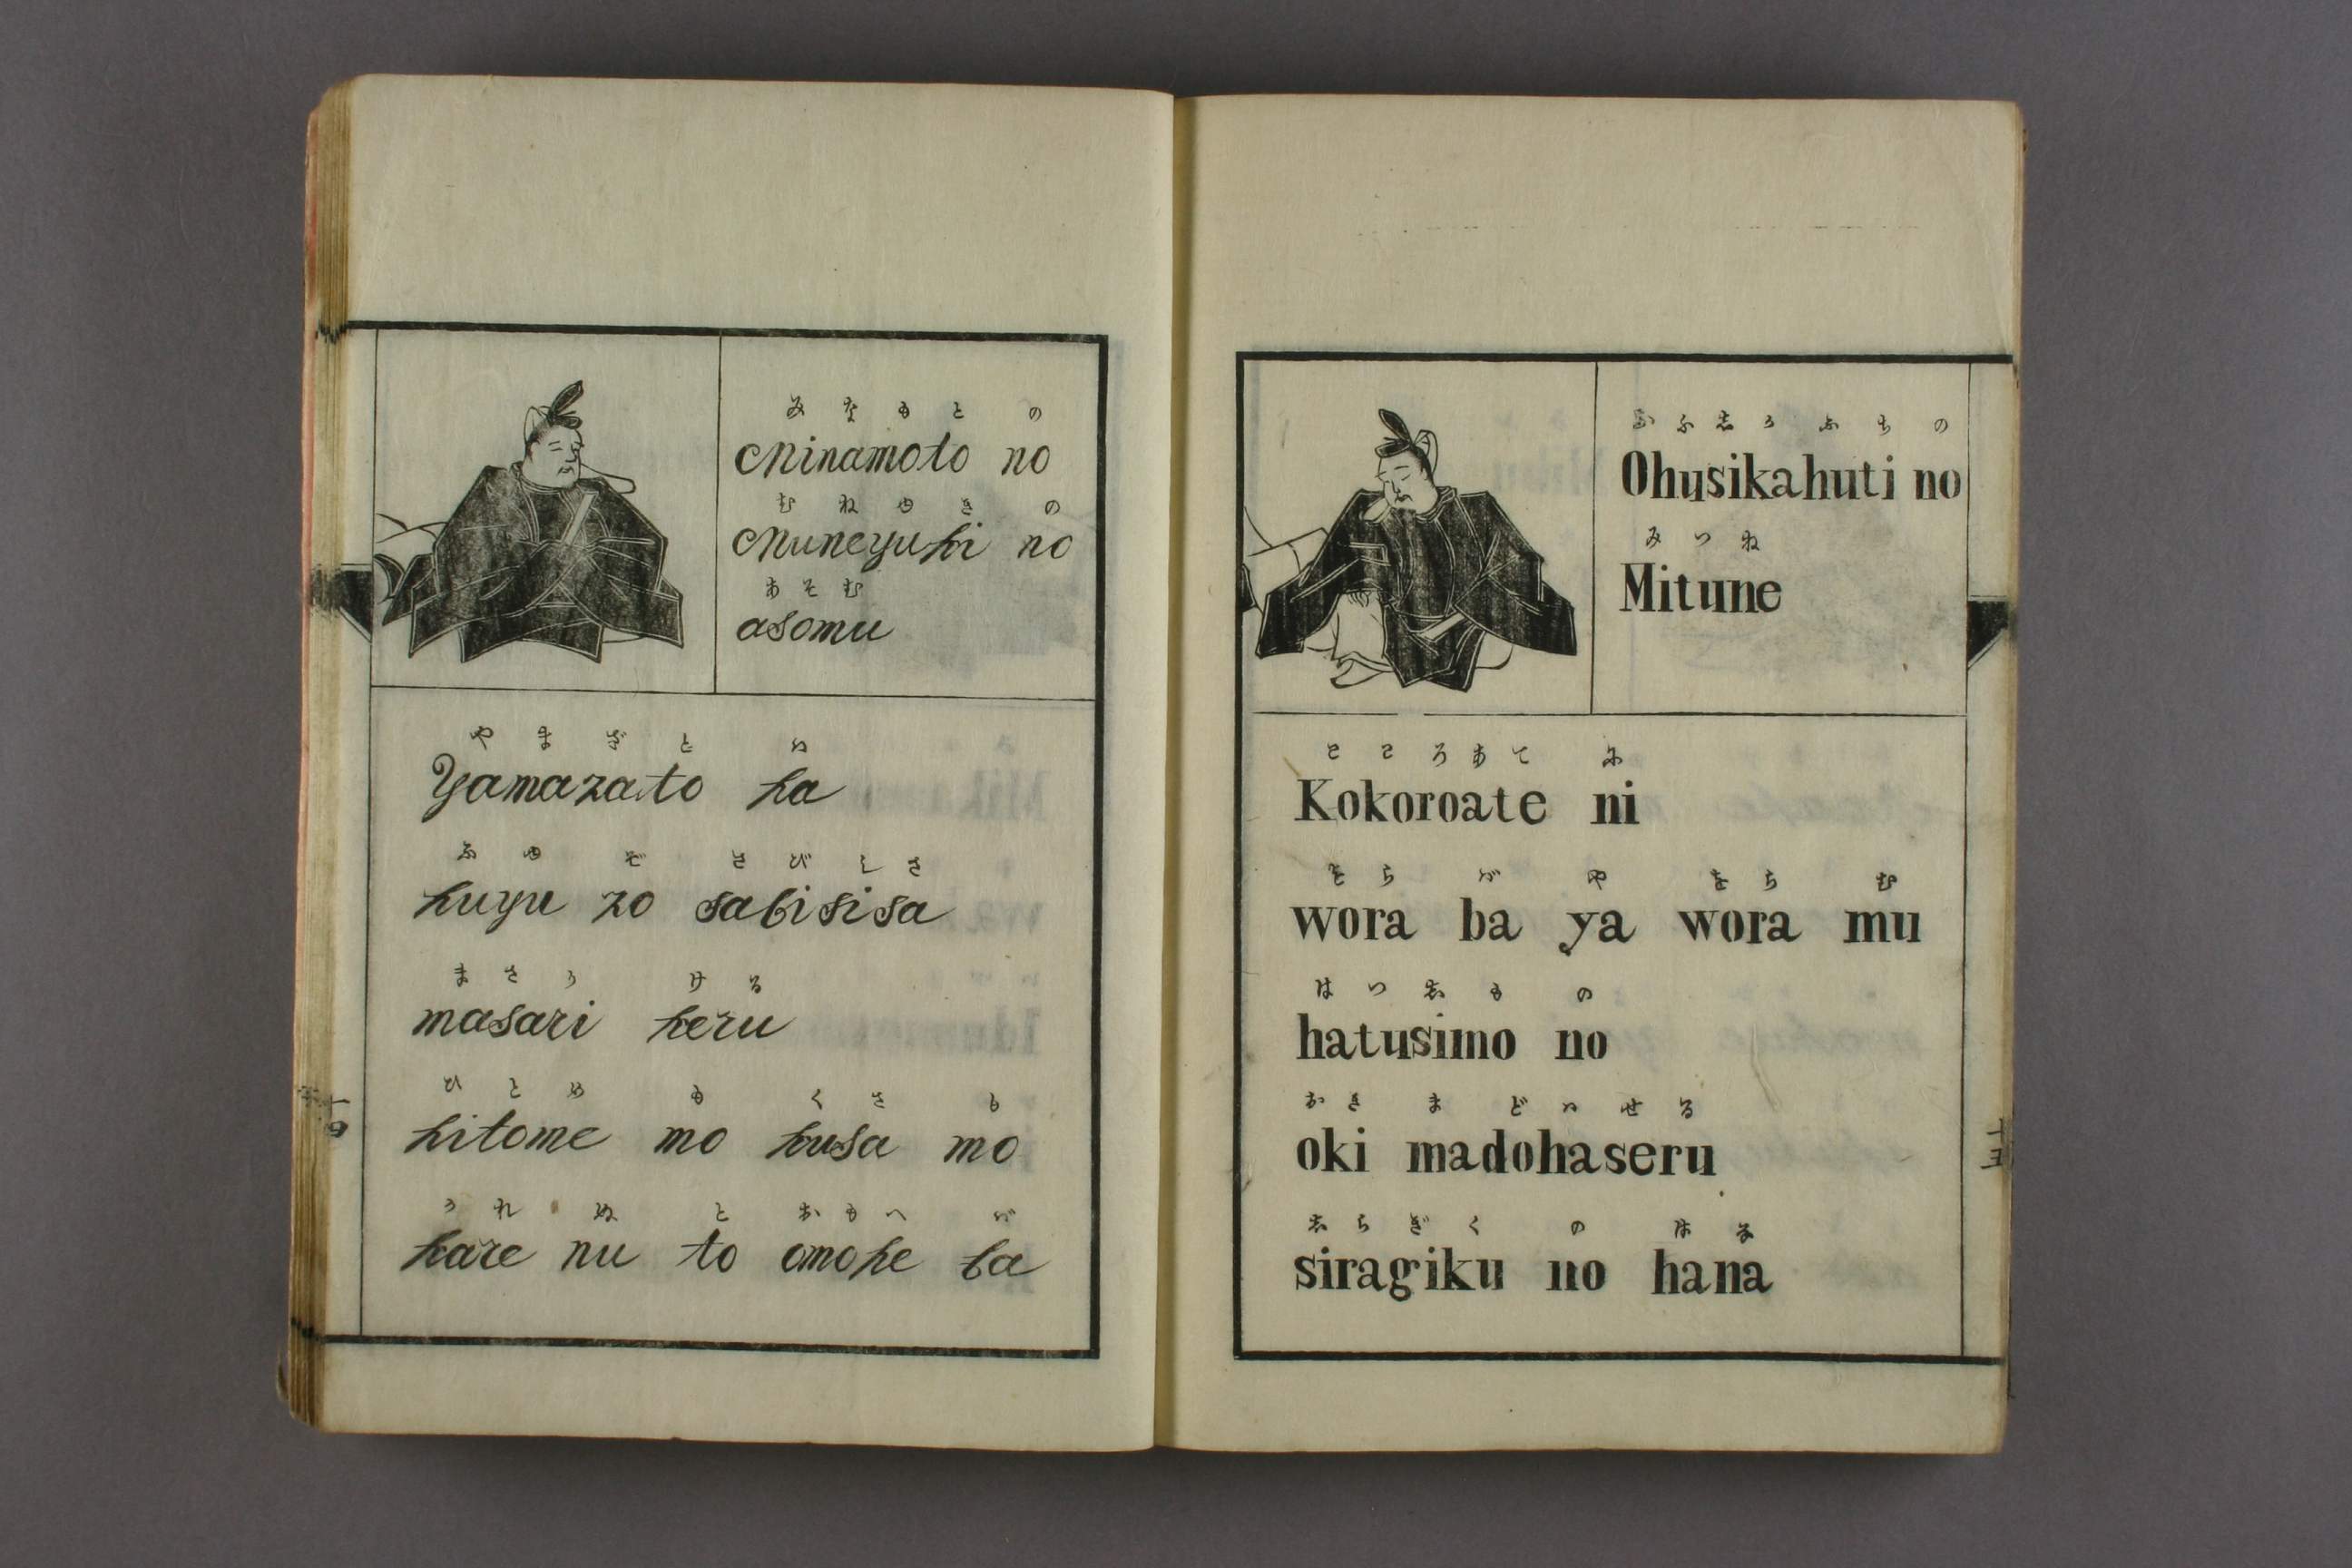 みなもとの
Minamoto no
むねゆきの
Muneyuki no
あそむ
asomu
やまざとハ
Yamazato ha
ふゆぞさびしさ
huyu zo sabisisa
まさり ける
masari keru
ひとめ も くさ も
hitome mo kusa mo
かれ ぬ と おもへ バ
kare nu to omohe ba
十四
おふしかふちの
Ohusikahuti no
みつね
Mitune
こころあて に
Kokoroate ni
をら バ や をら む
wora ba ya wora mu
はつしも の
hatusimo no
おき まどハせる
oki madohaseru
しらぎく の はな
siragiku no hana
十五